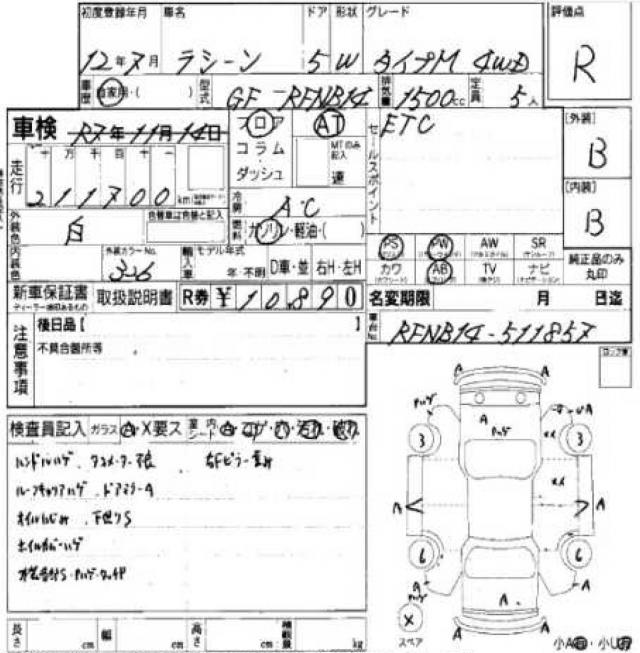 初度登録年月 車名 ドア 形状 グレード 評価点
12年7月 ラシーン 5 W タイプM 4WD R
車歴 自家用・( ) 型式 GF-RFNB14 排気量 1500cc 定員 5人
車検 R7年11月14日 フロア AT セールスポイント ETC [外装] B
コラム MTのみ記入
ダッシュ 速
走行 十 万 千 百 十 一
211700 km
冷房 A・C [内装] B
外装色 白 色替車は色替と記入 燃料 ガソリン・軽油・( )
PS PW AW SR
カワ AB TV ナビ 純正品のみ丸印
内装色 外装カラーNo. 326 輸入車 モデル年式 年・不明 D車・並 右H・左H
新車保証書 取扱説明書 R券 ¥10,890 名変期限 月 日迄
ディーラー捺印あるもの
注意事項 後日品【 車台No. RFNB14-511857
不具合箇所等
検査員記入 ガラス A・X要ス 室内シート A・コゲ・穴・汚れ・破れ
ハンドルハゲ
ルーフキャリアハゲ ドアミラーA
下廻りS
A A A
ハゲ A ハゲ
3 3
A A
6 6
A A A
ハゲ
A A
X スペア
小A 小U
長さ cm 幅 cm 高さ cm 積載量 kg